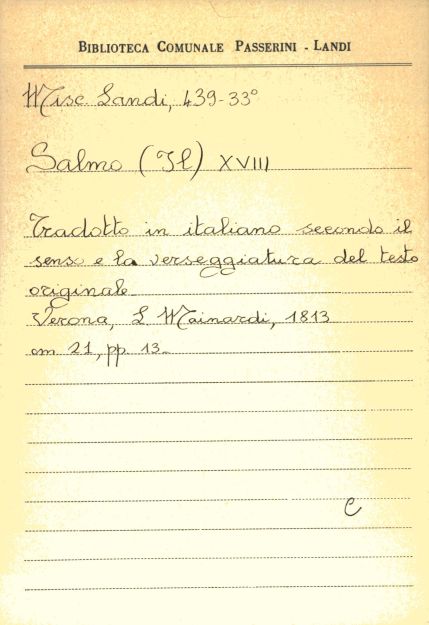 BIBLIOTECA COMUNALE PASSERINI - LANDI
Misc. Landi, 439-33°
Salmo (Il) XVIII
Tradotto in italiano secondo il
senso e la verseggiatura del testo
originale.
Verona, L. Mainardi, 1813
cm 21, pp. 13.
C